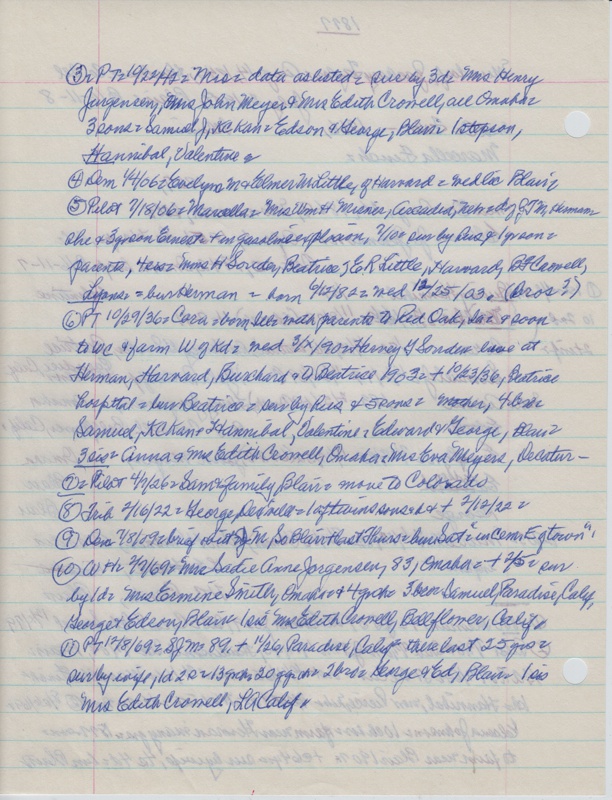 1897
③ = PT = 10/22/42 = Mrs = data as listed = sur by 3 d = Mrs Henry
Jorgensen, Mrs John Meyer & Mrs Edith Crowell, all Omaha =
3 sons = Samuel J, KC Kan = Edson & George, Blair 1 stepson,
Hannibal, Valentine =
④ Dem 1/4/06 = Evelyn M & Elmer W Little, of Harvard = wed Blair
⑤ Pilot 7/18/06 = Marcella = Mrs Wm H Misner, Arcadia, Nebr = d of J M, Herman
she & 3 yr son Ernest + in gasoline explosion, 7/10 = sur by hus & 1 yr son =
parents, 4 sis = Mrs H Sonder, Beatrice, E R Little, Harvard, B F Crowell,
Lyons = bur Herman = born 6/12/82 = wed 12/25/03. (bros?)
⑥ PT 10/29/36 = Cora = born Ill = with parents to Red Oak, Ia = & soon
to WC & farm W of Kd = wed 3/ /90 = Harvey G Sonder = lived at
Herman, Harvard, Burchard & to Beatrice 1903 = + 10/23/36, Beatrice
hospital = bur Beatrice = sur by hus & 5 sons = mother, 4 bros =
Samuel, KC Kan & Hannibal, Valentine = Edward & George, Blair
3 sis = Anna & Mrs Edith Crowell, Omaha = Mrs Eva Meyers, Decatur -
⑦ = Pilot 4/7/26 = Sam & family, Blair = move to Colorado
⑧ Trib 2/16/22 = George = 1 of twin sons & + 2/12/22 =
⑨ Dem 7/8/09 = brief = J M, So Blair + last Thurs = bur Sat = "in cem E of town"
⑩ WH 2/ /69 = Mrs Sadie Anne Jorgensen, 83, Omaha = + 2/5 = sur
by 1 d = Mrs Ermine Smith, Omaha = & 4 grchn 3 bros Samuel, Paradise, Calif,
George & Edson, Blair 1 sis Mrs Edith Crowell, Bellflower, Calif,,
⑪ PT 12/8/69 = S J M 89, + 11/26, Paradise, Calif there last 25 yrs =
sur by wife, 1 d 2 s = 13 grchn 20 ggrchn = 2 bros = George & Ed, Blair 1 sis
Mrs Edith Crowell, LA Calif,,